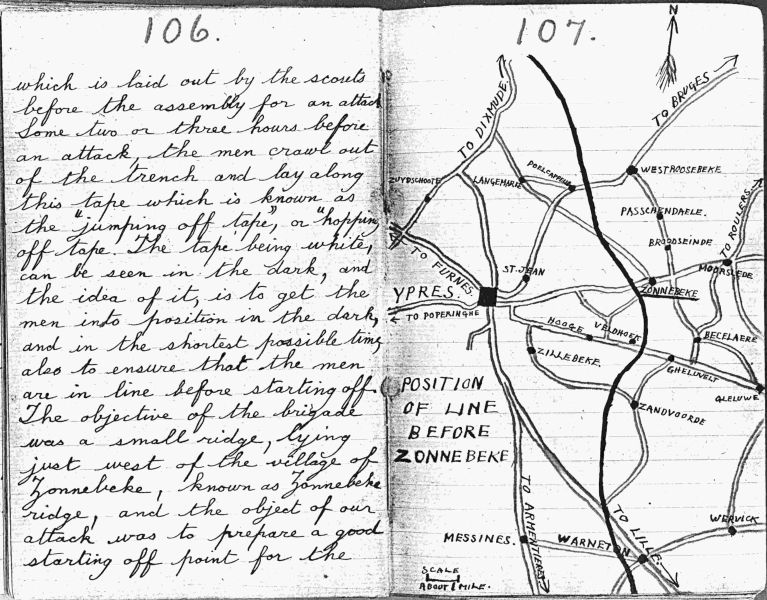 106.
which is laid out by the scouts
before the assembly for an attack
Some two or three hours before
an attack, the men crawl out
of the trench and lay along
this tape which is known as
the "jumping off tape", or "hopping
off tape. The tape being white,
can be seen in the dark, and
the idea of it, is to get the
men into position in the dark,
and in the shortest possible time,
also to ensure that the men
are in line before starting off.
The objective of the brigade
was a small ridge, lying
just west of the village of
Zonnebeke, known as Zonnebeke
ridge, and the object of our
attack was to prepare a good
starting off point for the
107.
N
TO DIXMUDE
TO BRUGES
ZUYDSCHOOTE
LANGEMARK
POELCAPPELLE
WESTROOSEBEKE
PASSCHENDAELE.
BROODSEINDE
TO ROULERS
MOORSLEDE
TO FURNES
ST. JEAN
ZONNEBEKE
YPRES
← TO POPERINGHE
HOOGE
VELDHOEK
BECELAERE
ZILLEBEKE.
GHELUVELT
GLELUWE
ZANDVOORDE
POSITION
OF LINE
BEFORE
ZONNEBEKE
TO ARMENTIERES
TO LILLE
MESSINES.
WARNETON
WERVICK
SCALE
ABOUT 1 MILE.